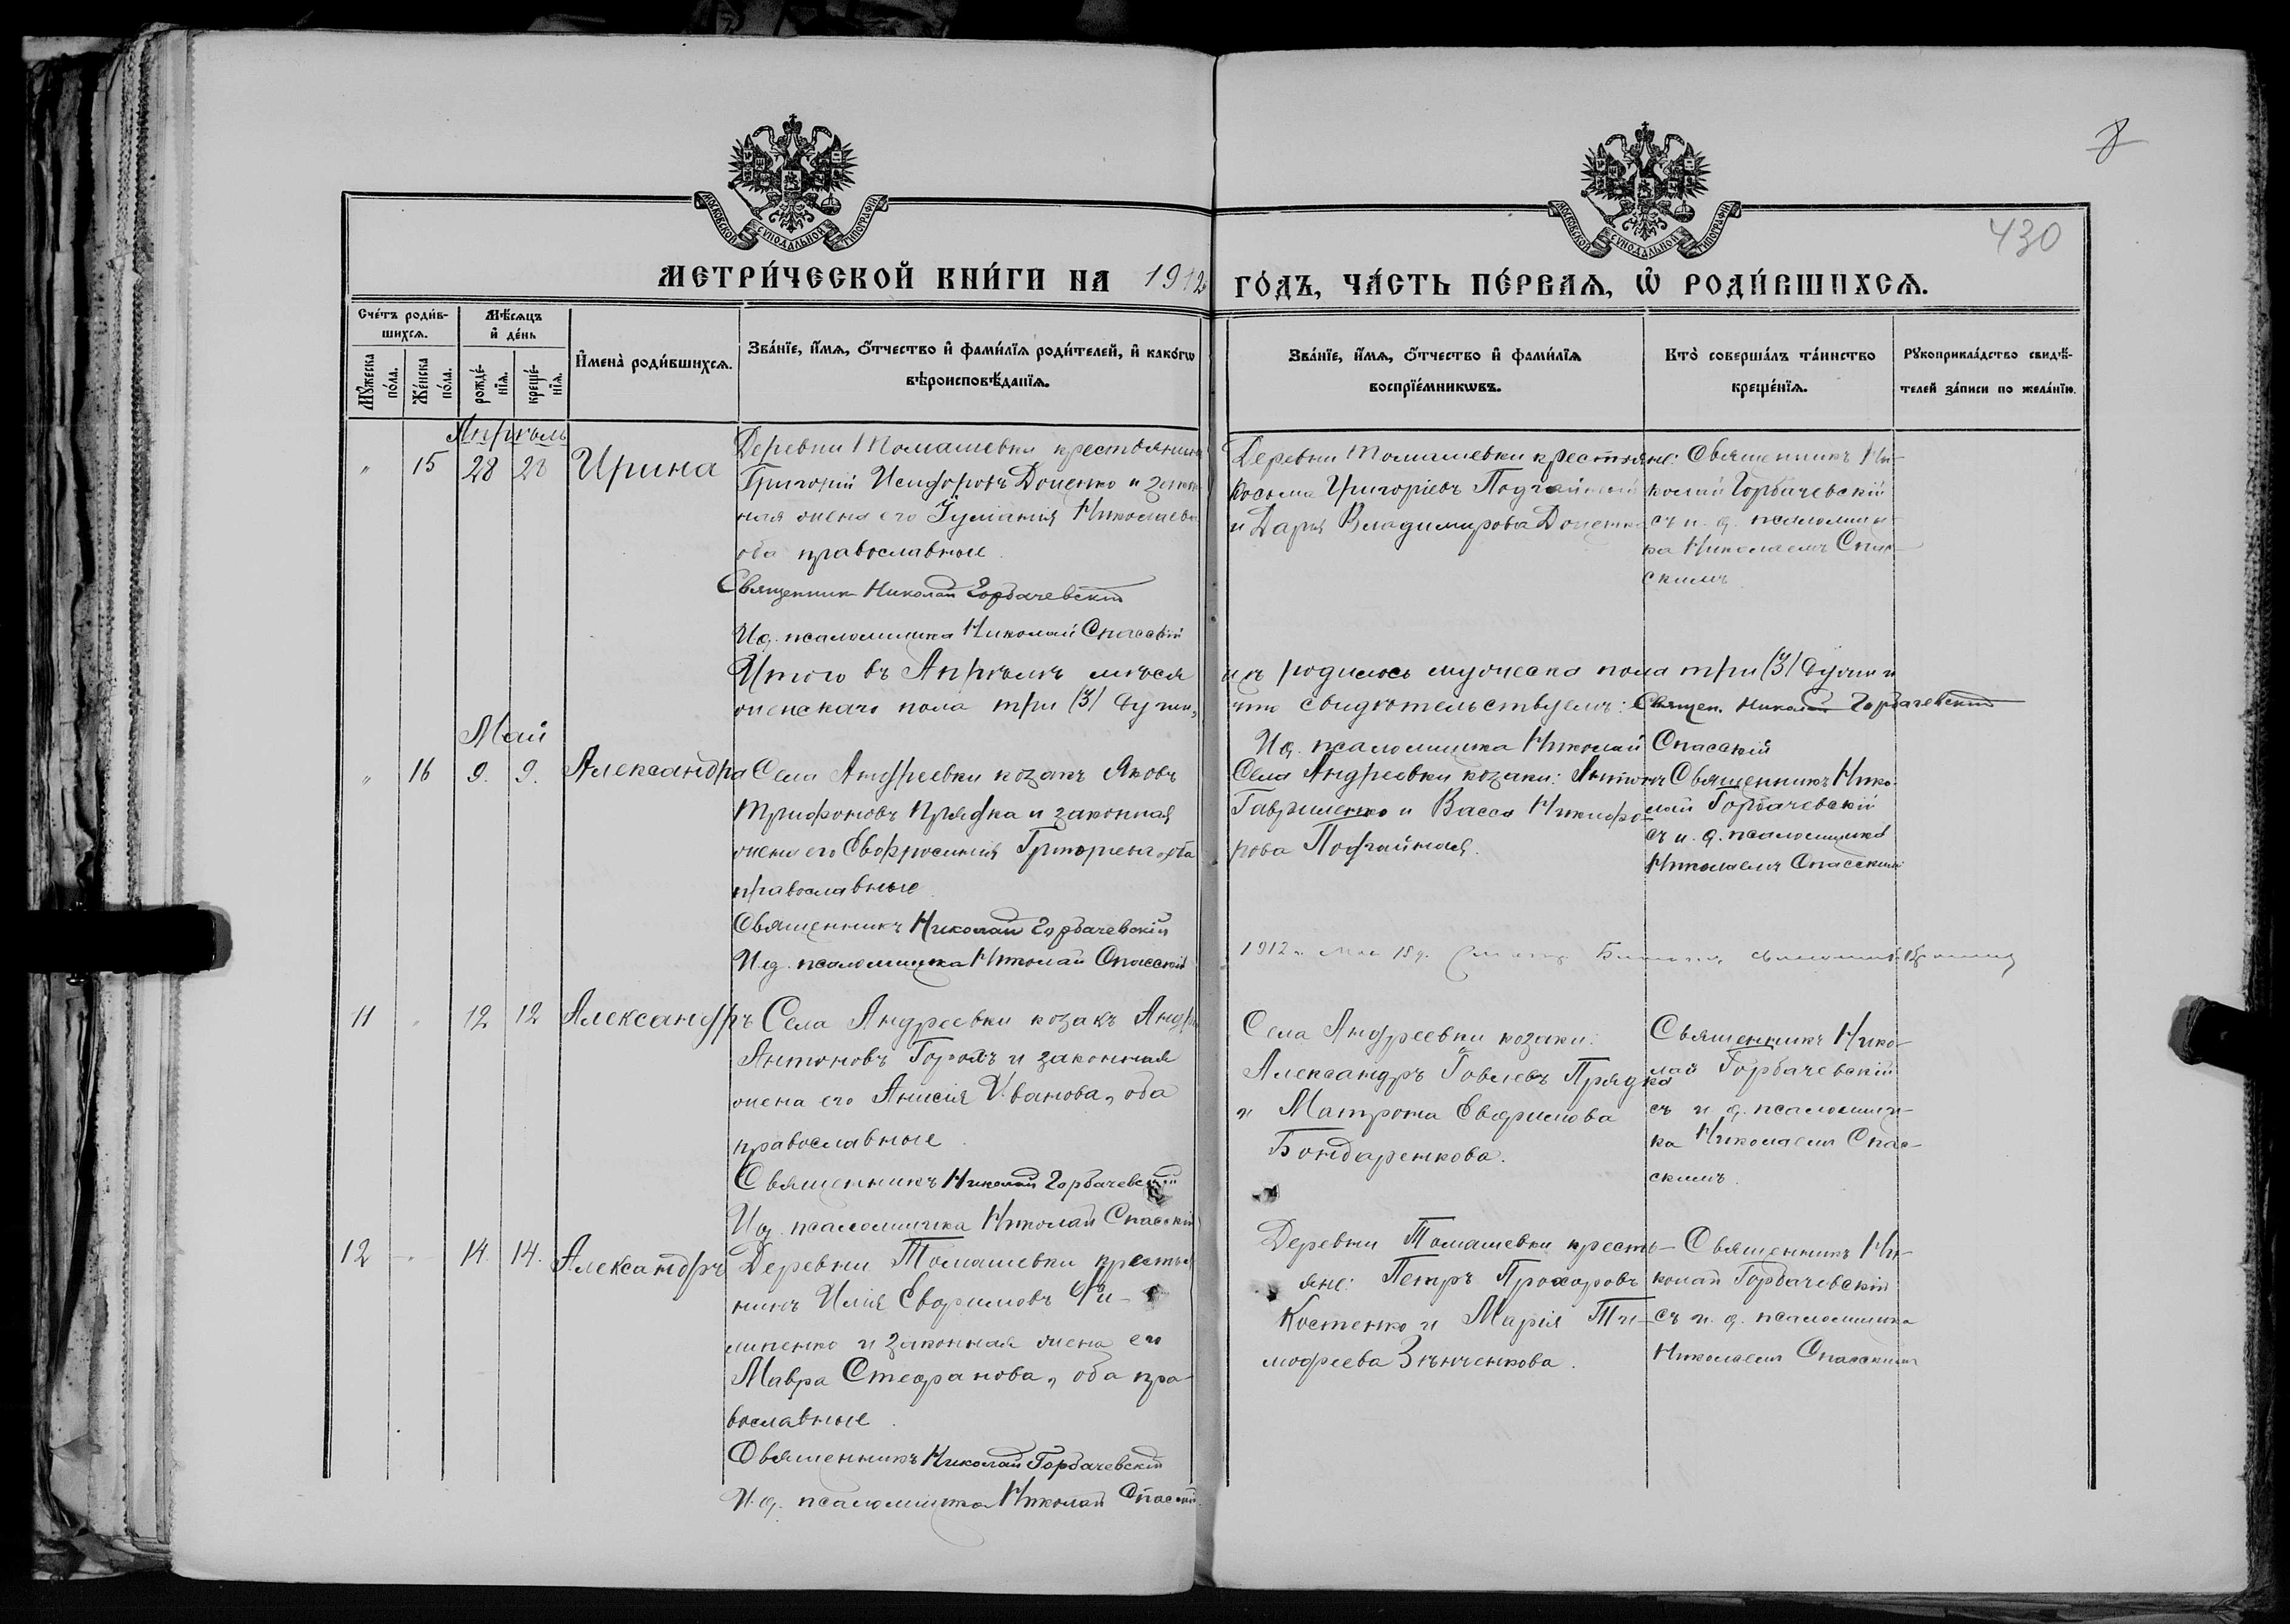 8
430
МОСКОВСКОЙ СѴНОДАЛЬНОЙ ТИПОГРАФІИ
МОСКОВСКОЙ СѴНОДАЛЬНОЙ ТИПОГРАФІИ
МЕТРИ́ЧЕСКОЙ КНИ́ГИ НА 1912 ГО́ДЪ, ЧА́СТЬ ПЕ́РВАѦ, Ѡ҆ РОДИ́ВШИХСѦ.
Сче́тъ роди́в-
шихсѧ.
Мѣ́сѧцъ
и҆ де́нь
Мꙋ́жеска
по́ла.
Же́нска
по́ла.
рожде́-
нїѧ.
креще́-
нїѧ.
И҆мена̀ роди́вшихсѧ.
Зва́нїе, и҆́мѧ, ѻ҆́тчество и҆ фами́лїѧ роди́телей, и҆ како́гѡ
вѣроисповѣ́данїѧ.
Зва́нїе, и҆́мѧ, ѻ҆́тчество и҆ фами́лїѧ
воспрїе́мникѡвъ.
Кто̀ соверша́лъ та́инство
креще́нїѧ.
Рꙋкоприкла́дство свидѣ́-
телей за́писи по жела́нїю.
Апрѣль
" 15 28 28 Ирина
Деревни Томашевки крестьянинъ
Григорій Исидоровъ Доценко и закон-
ная жена его Николаева
оба православные.
Священник Николай Горбачевскій
И.д. псаломщика Николай Спасскій
Деревни Томашевки крестьяне:
Косьма Григоріевъ
и Дарья Владимирова Доценко
Священникъ Ни-
колай Горбачевскій
съ и. д. псаломщи-
ка Николаемъ Спас-
скимъ
Итого въ Апрѣлѣ мѣся цѣ родилось мужеска пола три (3) души и
женскаго пола три (3) души, что свидѣтельствуемъ: Священ. Николай Горбачевскій
И.д. псаломщика Николай Спасскій
Май
" 16 9. 9. Александра
Села Андреевки козакъ Яковъ
Трифоновъ Прядка и законная
жена его Евфросинія Григорьева, оба
православные.
Священникъ Николай Горбачевскій
И.д. псаломщика Николай Спасскій
Села Андреевки козаки: Антонъ
Гавриленко и Васса Никифо-
рова Подгайная.
Священникъ Нико-
лай Горбачевскій
съ и. д. псаломщика
Николаемъ Спасскимъ
1912 г.
11 " 12 12 Александръ
Села Андреевки козакъ
Антоновъ и законная
жена его Анисія Иванова, оба
православные.
Священникъ Николай Горбачевскій
И.д. псаломщика Николай Спасскій
Села Андреевки козаки:
Александръ Прядка
и Матрона Ефимова
Бондаренкова.
Священникъ Нико-
лай Горбачевскій
съ и. д. псаломщи-
ка Николаемъ Спас-
скимъ.
12 " 14. 14. Александръ
Деревни Томашевки крестья-
нинъ Илія Ефимовъ Фи-
липенко и законная жена его
Мавра Стефанова, оба пра-
вославные.
Священникъ Николай Горбачевскій
И.д. псаломщика Николай Спасскій
Деревни Томашевки кресть-
яне: Петръ Прохоровъ
Костенко и Марія Ти-
мофеева Зѣнченкова.
Священникъ Ни-
колай Горбачевскій
съ и. д. псаломщика
Николаемъ Спасскимъ